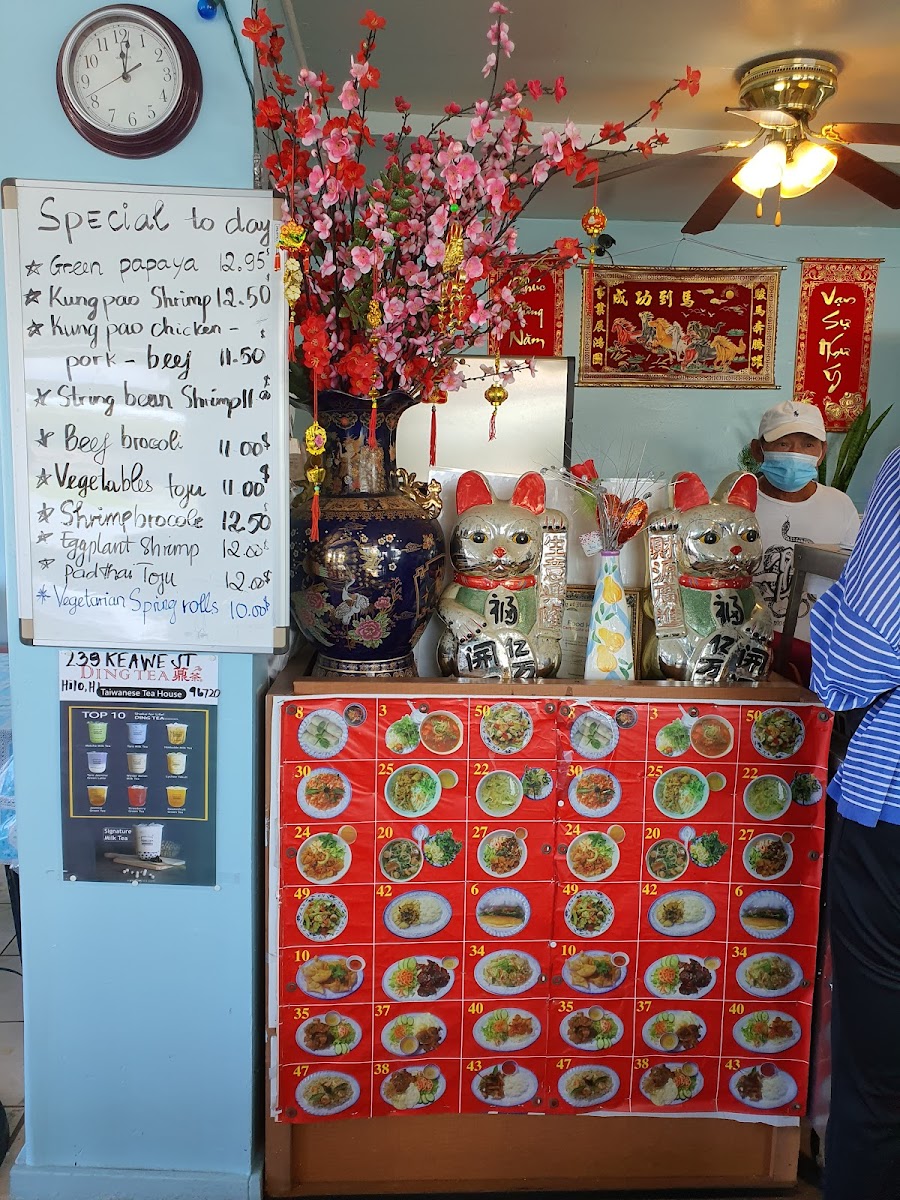 12 1 2 3 4 5 6 7 8 9 10 11
SpEcial to day
Green papaya 12.95
Kung pao Shrimp 12.50
Kung pao chicken -
pork - beef 11.50 $
String bean Shrimp 11 00 $
Beef brocoli 11 00 $
Vegetables tofu 11 00 $
Shrimp brocole 12.50
Eggplant Shrimp 12 00 $
Pad thai Tofu 12.00 $
Vegetarian Spring rolls 10.00 $
239 KEAWE ST
DING TEA 鼎茶
Hilo, H Taiwanese Tea House 96720
TOP 10
DING TEA
Signature
Milk Tea
Năm
成功到馬
駿馬奔騰
Vạn
Sự
Như
Ý
財源廣進
福
福
開
亿
万
亿
万
開
8 3 50 8 3 50
30 25 22 30 25 22
24 20 27 24 20 27
49 42 6 49 42 6
10 34 10 34
35 37 40 35 37 40
47 38 43 47 38 43